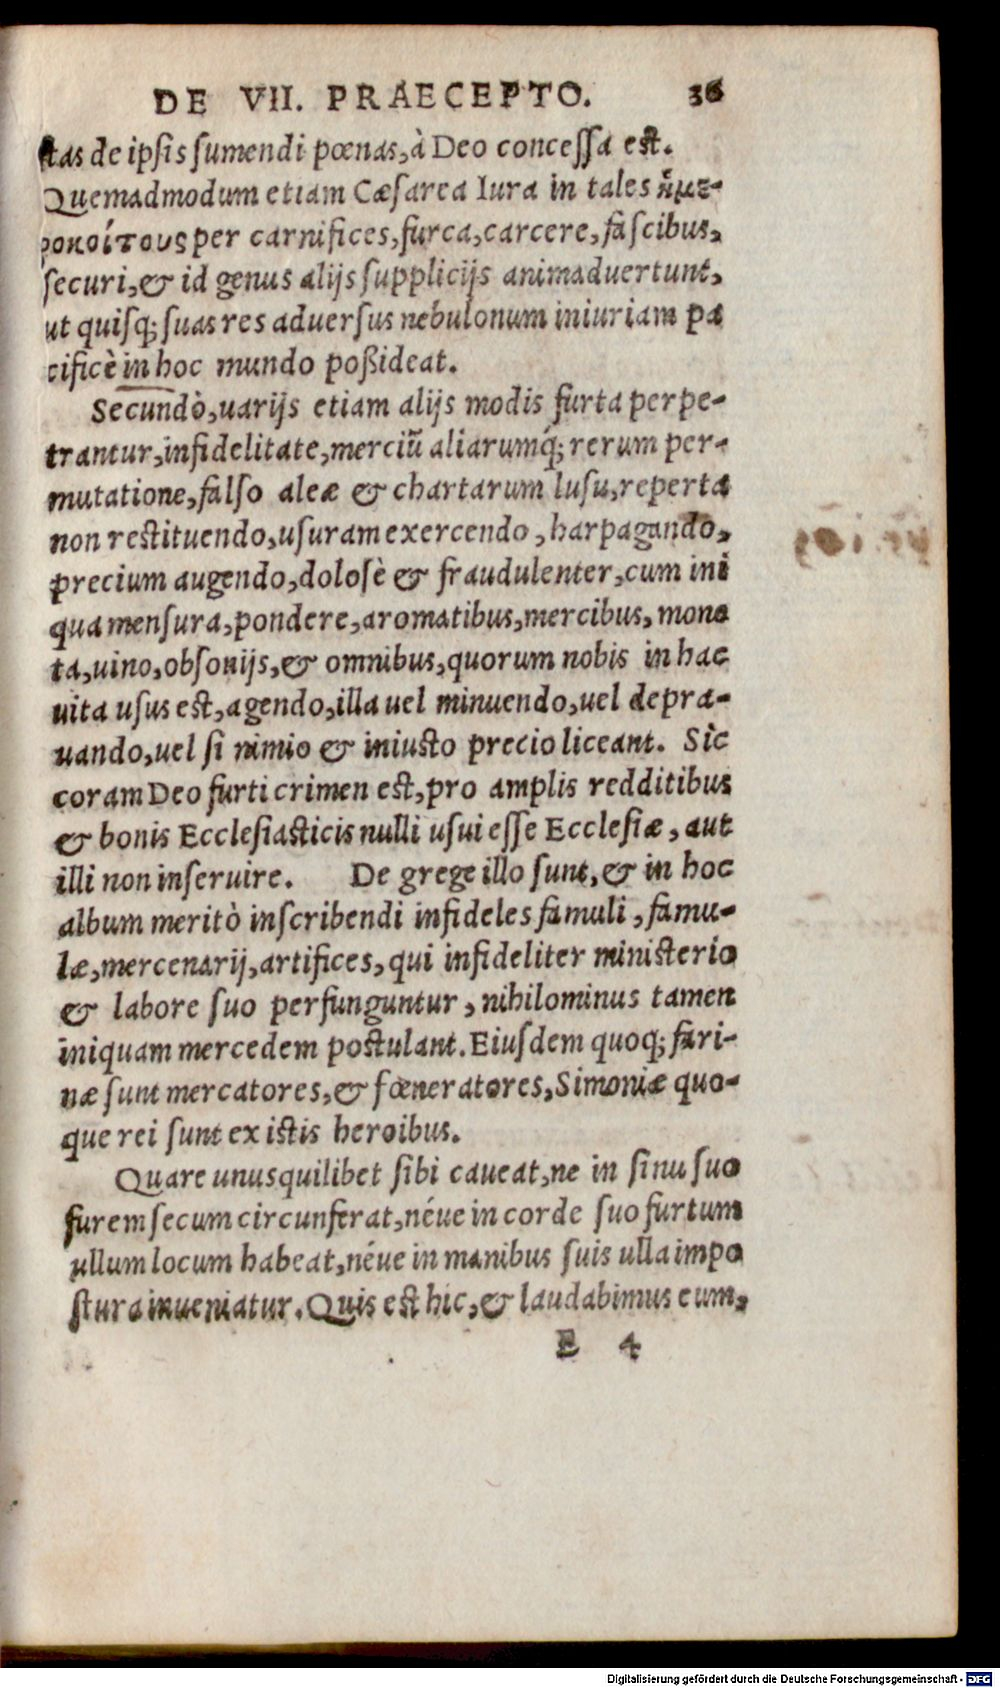 DE VII. PRAECEPTO. 36
ſtas de ipſis ſumendi pœnas, à Deo conceſſa eſt.
Quemadmodum etiam Cæſarea Iura in tales ἡμε-
ροκοίτους per carnifices, furca, carcere, faſcibus,
ſecuri, & id genus alijs ſupplicijs animaduertunt,
ut quiſq; ſuas res aduerſus nébulonum iniuriam pa
cificè in hoc mundo poßideat.
Secundò, uarijs etiam alijs modis furta perpe-
trantur, infidelitate, merciũ aliarumq́; rerum per-
mutatione, falſo aleæ & chartarum luſu, reperta
non reſtituendo, uſuram exercendo, harpagando,
precium augendo, doloſè & fraudulenter, cum ini
qua menſura, pondere, aromatibus, mercibus, mone
ta, uino, obſonijs, & omnibus, quorum nobis in hac
uita uſus eſt, agendo, illa uel minuendo, uel depra-
uando, uel ſi nimio & iniuſto precio liceant. Sic
coram Deo furti crimen eſt, pro amplis redditibus
& bonis Eccleſiaſticis nulli uſui eſſe Eccleſiæ, aut
illi non inſeruire. De grege illo ſunt, & in hoc
album meritò inſcribendi infideles famuli, famu-
læ, mercenarij, artifices, qui infideliter miniſterio
& labore ſuo perfunguntur, nihilominus tamen
iniquam mercedem poſtulant. Eiuſdem quoq; fari-
næ ſunt mercatores, & fœneratores, Simoniæ quo-
que rei ſunt ex iſtis heroibus.
Quare unusquilibet ſibi caueat, ne in ſinu ſuo
furem ſecum circunferat, néue in corde ſuo furtum
ullum locum habeat, néue in manibus ſuis ulla impo
ſtura inueniatur. Quis eſt hic, & laudabimus eum,
E 4
Digitalisierung gefördert durch die Deutsche Forschungsgemeinschaft - DFG